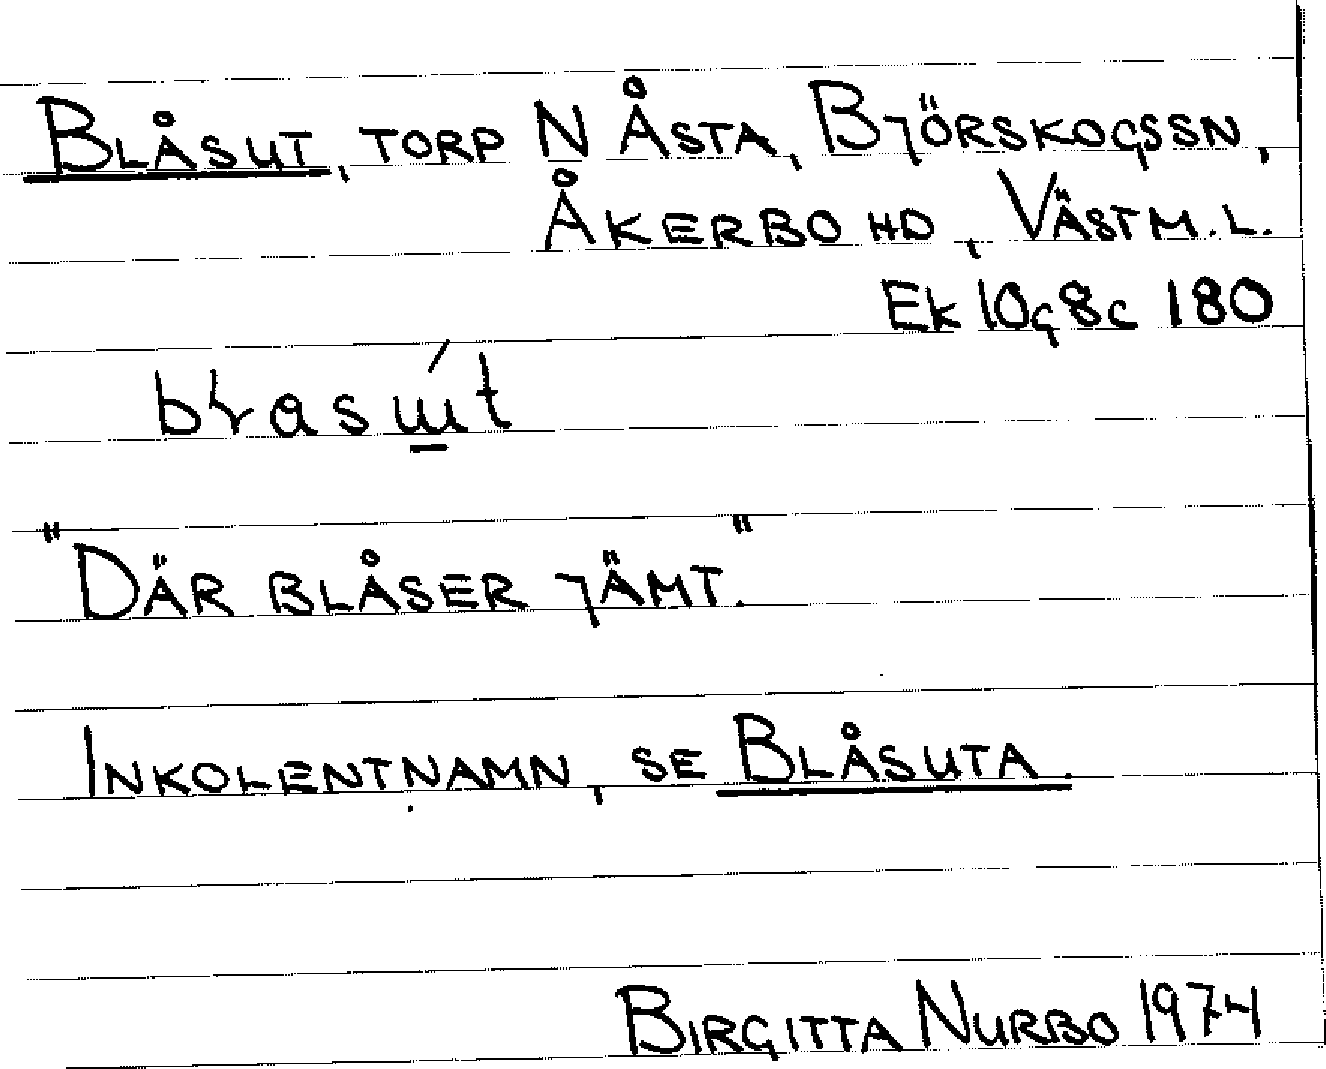 Blåsut, torp N Åsta, Björskogssn,
Åkerbo hd, Västm.l.
Ek 10g8c 180
"Där blåser jämt."
Inkolentnamn, se Blåsuta.
Birgitta Nurbo 1974